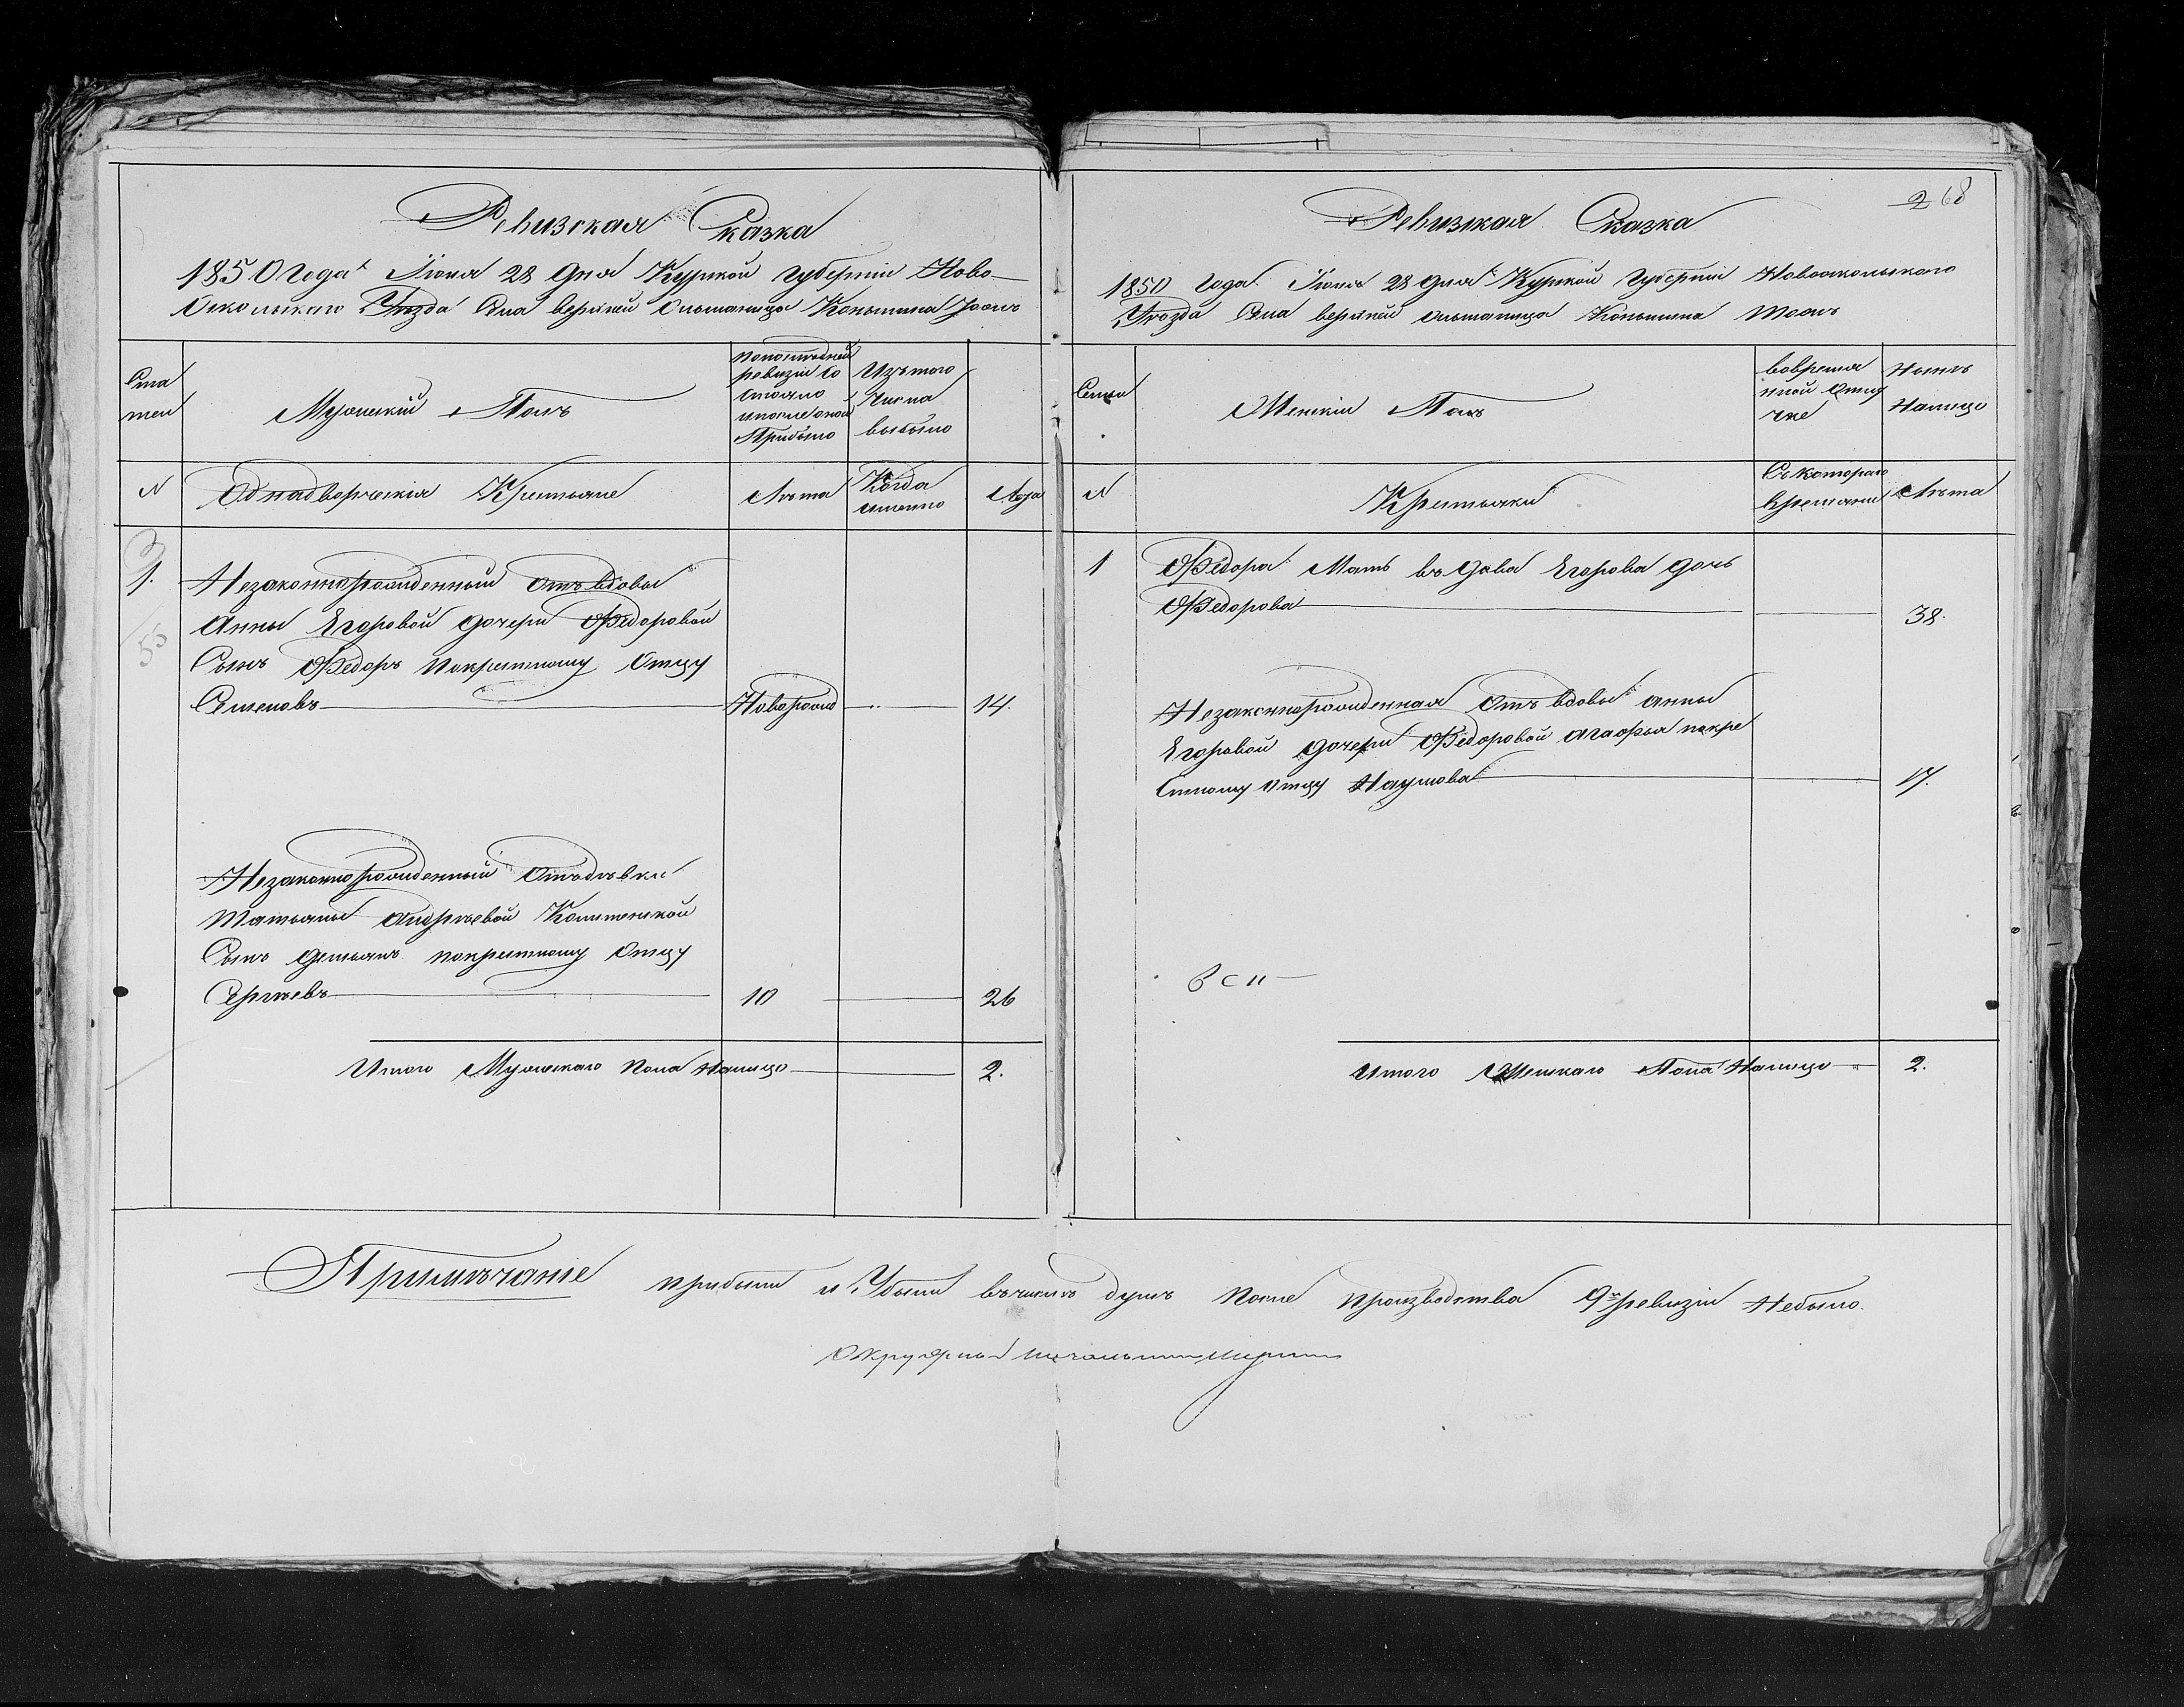 Ревизская Сказка
1850 Года Июня 28 дня Курской губерніи Ново
Оскольскаго Уезда Села верхней Ольшаница Коньшина тожъ
Ста
тьи
Мужескій Полъ
попоследней
ревизіи со
стояло
ипосле оной
Прибыло
Изътого
Числа
выбыло
N
Однадворческія Крестьяне
Лѣта
Когда
именно
Лета
3
1.
55
Незаконнорожденный отъ вдовы
Анны Егоровой дочери Федоровой
Сынъ Федоръ покрестному Отцу
Семеновъ
Новорожд
14.
Незаконнорожденный Отъдѣвки
Татьяны Андрѣевой
Сынъ Демьянъ покрестному Отцу
Сергѣевъ
10
26
Итого Мужескаго Пола Налицо
2.
268
Ревизская Сказка
1850 Года Июня 28 дня Курской Губерніи Новооскольскаго
Уезда Села верхней ольшаница Коньшина тожъ
Семьи
Женскій Полъ
вовремя
нной отлу
чке
Нынѣ
Налицо
N
Крестьяки
Съкотораго
времяни
Лѣта
1
Федора Мать въдова Егорова дочь
Федорова
38.
Незаконнорожденная Отъ вдовы анны
Егоровой дочери Федоровой агафья покре
Стному отцу Наумова
17.
Итого Женскаго Пола Налицо
2.
Примѣчание прибыли и Убыли въчислѣ душъ после производства 9й ревизіи Небыло.
Окружный Начальникъ